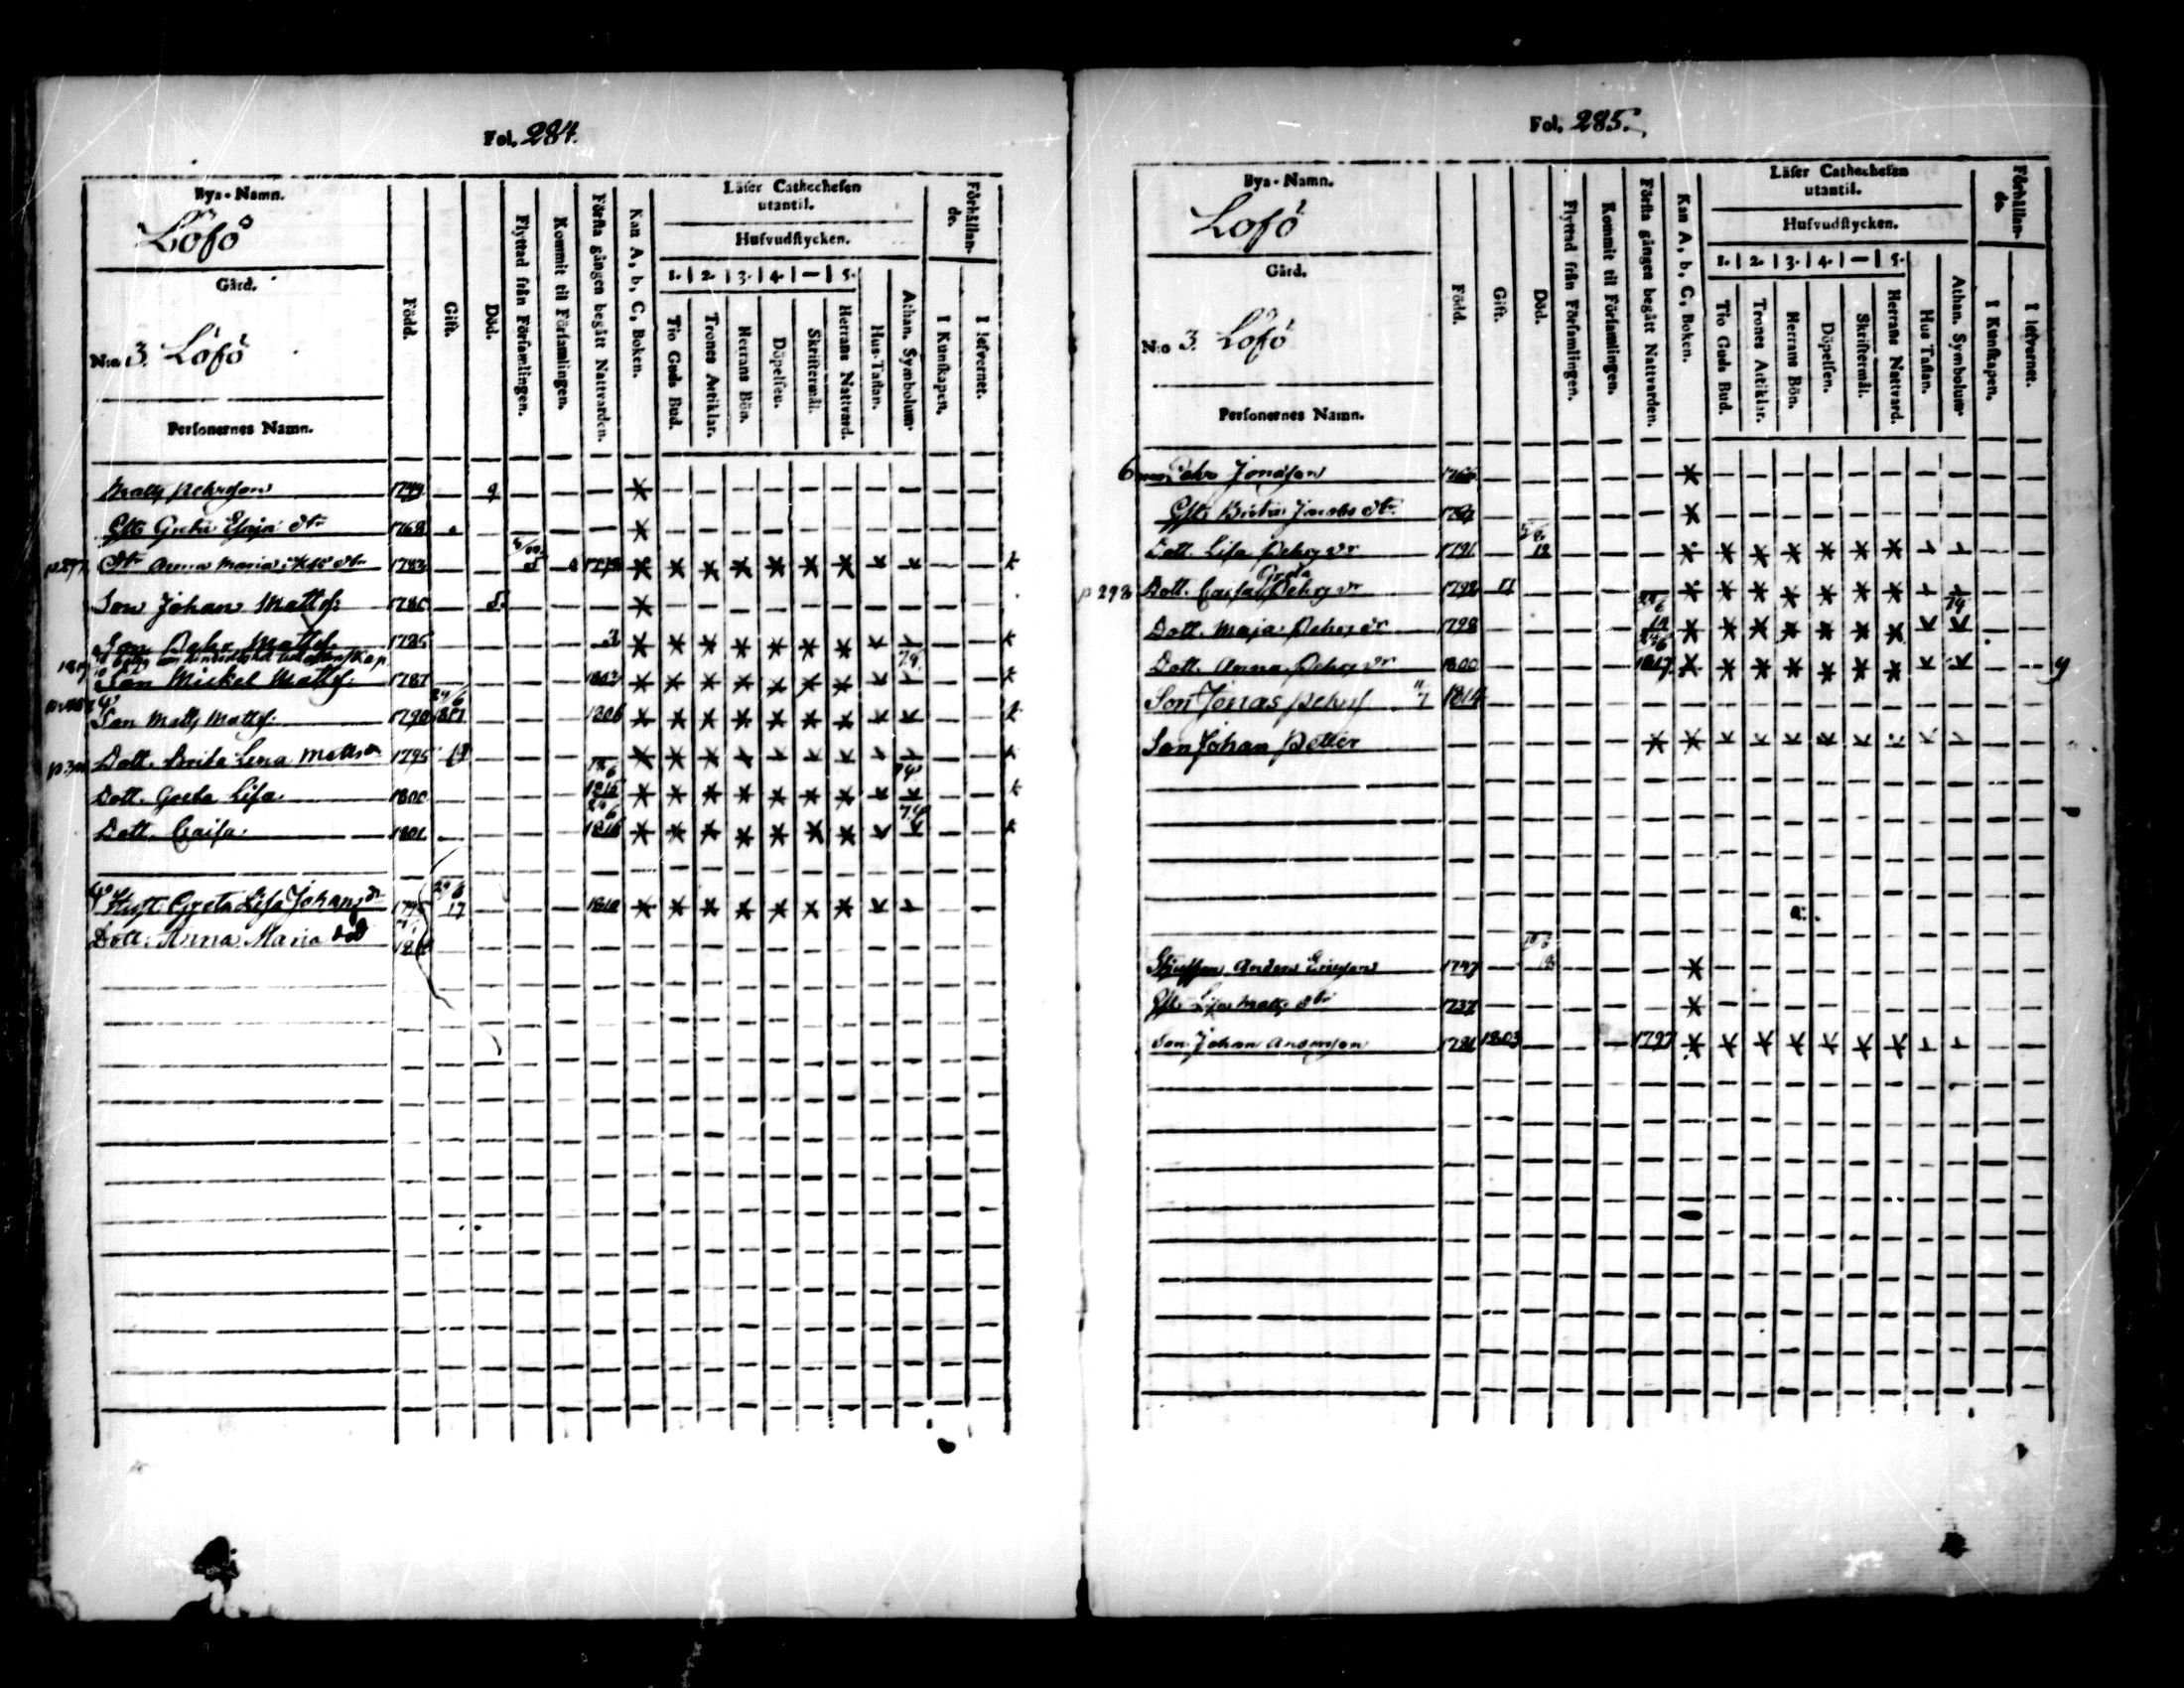 Fol. 284.
Bya-Namn.
Löfö
Gård.
N:o 3. Löfö
Personernes Namn.
Född.
Gift.
Död.
Flyttad från Församlingen.
Kommit til Församlingen.
Första gången begått Nattvarden.
Kan A, b, C, Boken.
Läser Cathechesen
utantil.
Hufvudstycken.
1. 2. 3. 4. — 5.
Tio Guds Bud.
Trones Artiklar.
Herrans Bön.
Döpelsen.
Skriftermål.
Herrans Nattvard.
Hus-Taflan.
Athan. Symbolum.
Förhållan-
de.
I Kunskapen.
I lefvernet.
Matts Pehrsson 1744 9
Greta Esaiæ dtr 1768
dtr Anna Maria dtr 1783
Son Johan Matts: 1780
Son Pehr Matts. 1785 3
1819
Son Mickel Matts: 1787 1803 79
Son Matts Matts: 1790 24/6 1817 1806
Dott. Brita Lena Matts dr 1795 19
Dott. Greta Lisa. 1800 1815 79
Dott. Caisa. 1801 24/6 1816 79
Hust. Greta Lisa Johans dr 1795 24/6 17 1810
Dott: Anna Maria död
Fol. 285.
Bya-Namn.
Lofö
Gård.
N:o 3. Lofö
Personernes Namn.
Född.
Gift.
Död.
Flyttad från Församlingen.
Kommit til Församlingen.
Första gången begått Nattvarden.
Kan A, b, C, Boken.
Läser Cathechesen
utantil.
Hufvudstycken.
1. 2. 3. 4. — 5.
Tio Guds Bud.
Trones Artiklar.
Herrans Bön.
Döpelsen.
Skriftermål.
Herrans Nattvard.
Hus Taflan.
Athan. Symbolum.
Förhållan-
de.
I Kunskapen.
I lefvernet.
Pehr Jonasson 1766
Brita Jacobs dtr.
Dott. Lisa Pehrs dr 1791
Greta
p 293 Dott. Caisa Pehrs dr 1792 11
Dott. Maja Pehrs dr 1798 79
Dott. Anna Pehrs dr 1800 1817
Son Jonas Pehrs 11/7 1814
Son Johan Petter
Anders Ericsson 1747
Lisa Matts dtr 1737
Son Johan Andersson 1781 1803 1797